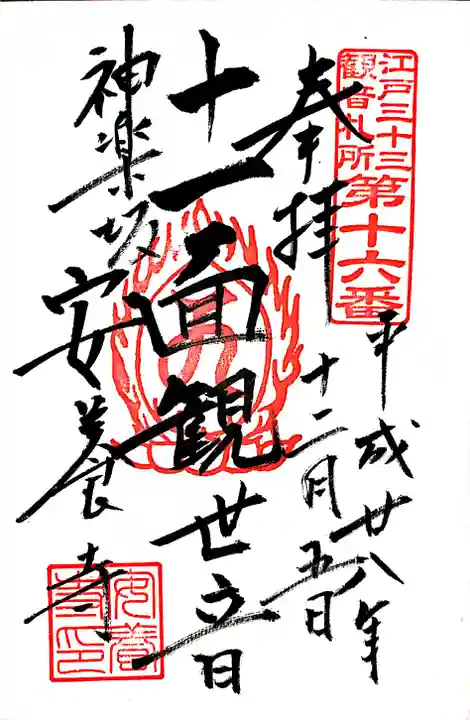 江戸三十三
観音札所
第十六番
奉拝
平成廿八年
十二月五日
十一面観世音
神楽坂
安養寺
安養
寺印